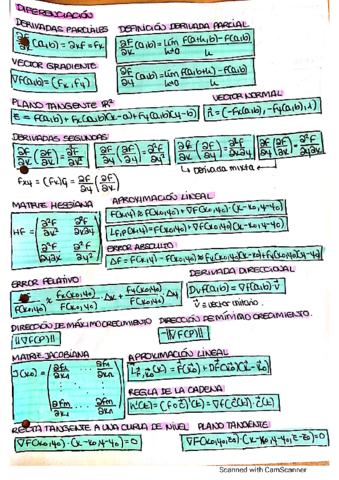 DIFERENCIACIÓN
DERIVADAS PARCIALES DEFINICIÓN DERIVADA PARCIAL
∂F/∂x (a,b) = ∂xF = Fx
∂F/∂x (a,b) = lím h→0 F(a+h,b) - F(a,b) / h
VECTOR GRADIENTE
∇F(a,b) = (Fx, Fy)
∂F/∂y (a,b) = lím h→0 F(a,b+h) - F(a,b) / h
PLANO TANGENTE ℝ² VECTOR NORMAL
z = F(a,b) + Fx(a,b)(x-a) + Fy(a,b)(y-b)
n⃗ = (-Fx(a,b), -Fy(a,b), 1)
DERIVADAS SEGUNDAS
∂F/∂x (∂F/∂x) = ∂²F/∂x² ∂F/∂y (∂F/∂y) = ∂²F/∂y²
↳ Derivada mixta
Fxy = (Fx)y = ∂F/∂y (∂F/∂x)
MATRIZ HESSIANA APROXIMACIÓN LINEAL
F(x,y) ≈ F(x0,y0) + ∇F(x0,y0)·(x-x0, y-y0)
HF = (∂²F/∂x² ∂²F/∂x∂y
∂²F/∂y∂x ∂²F/∂y²)
ERROR ABSOLUTO
ΔF = F(x,y) - F(x0,y0) ≈ Fx(x0,y0)(x-x0) + Fy(x0,y0)(y-y0)
ERROR RELATIVO DERIVADA DIRECCIONAL
≈ Fx(x0,y0)/F(x0,y0) Δx + Fy(x0,y0)/F(x0,y0) Δy
Dv F(a,b) = ∇F(a,b)·v⃗
v⃗ = vector unitario.
DIRECCIÓN DE MÁXIMO CRECIMIENTO DIRECCIÓN DE MÍNIMO CRECIMIENTO.
||∇F(P)|| -||∇F(P)||
MATRIZ JACOBIANA APROXIMACIÓN LINEAL
REGLA DE LA CADENA
RECTA TANGENTE A UNA CURVA DE NIVEL PLANO TANGENTE
∇F(x0,y0)·(x-x0, y-y0) = 0 ∇F(x0,y0,z0)·(x-x0, y-y0, z-z0) = 0
Scanned with CamScanner